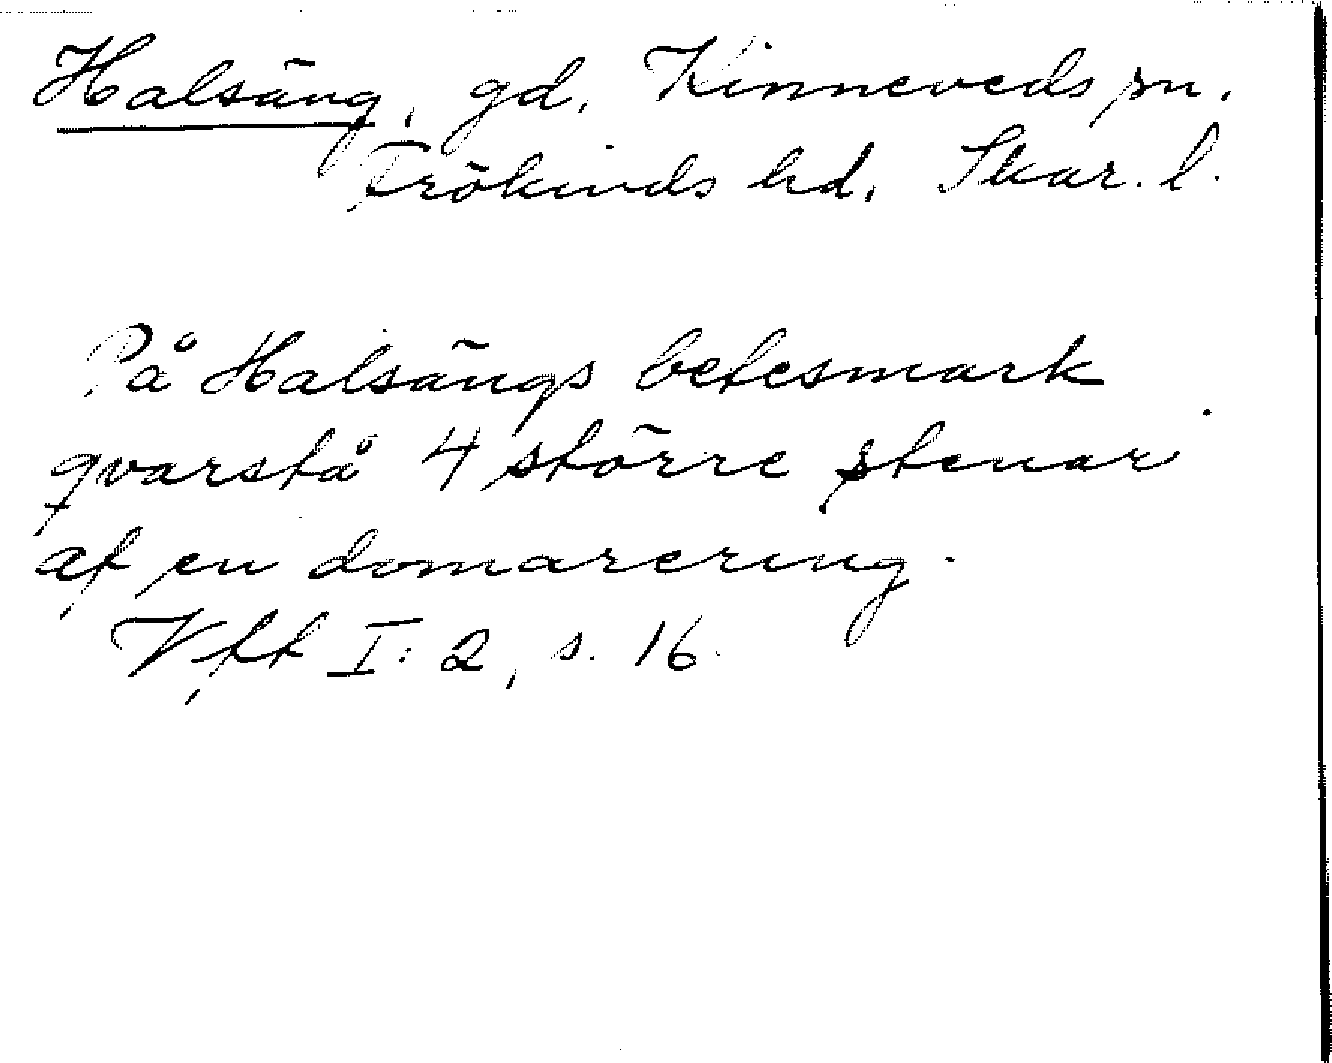 Halsäng, gd, Kinneveds sn.
Frökinds hd. Skar. l.
På Halsängs betesmark
qvarstå 4 större stenar
af en domarering.
Vft I: 2, s. 16.